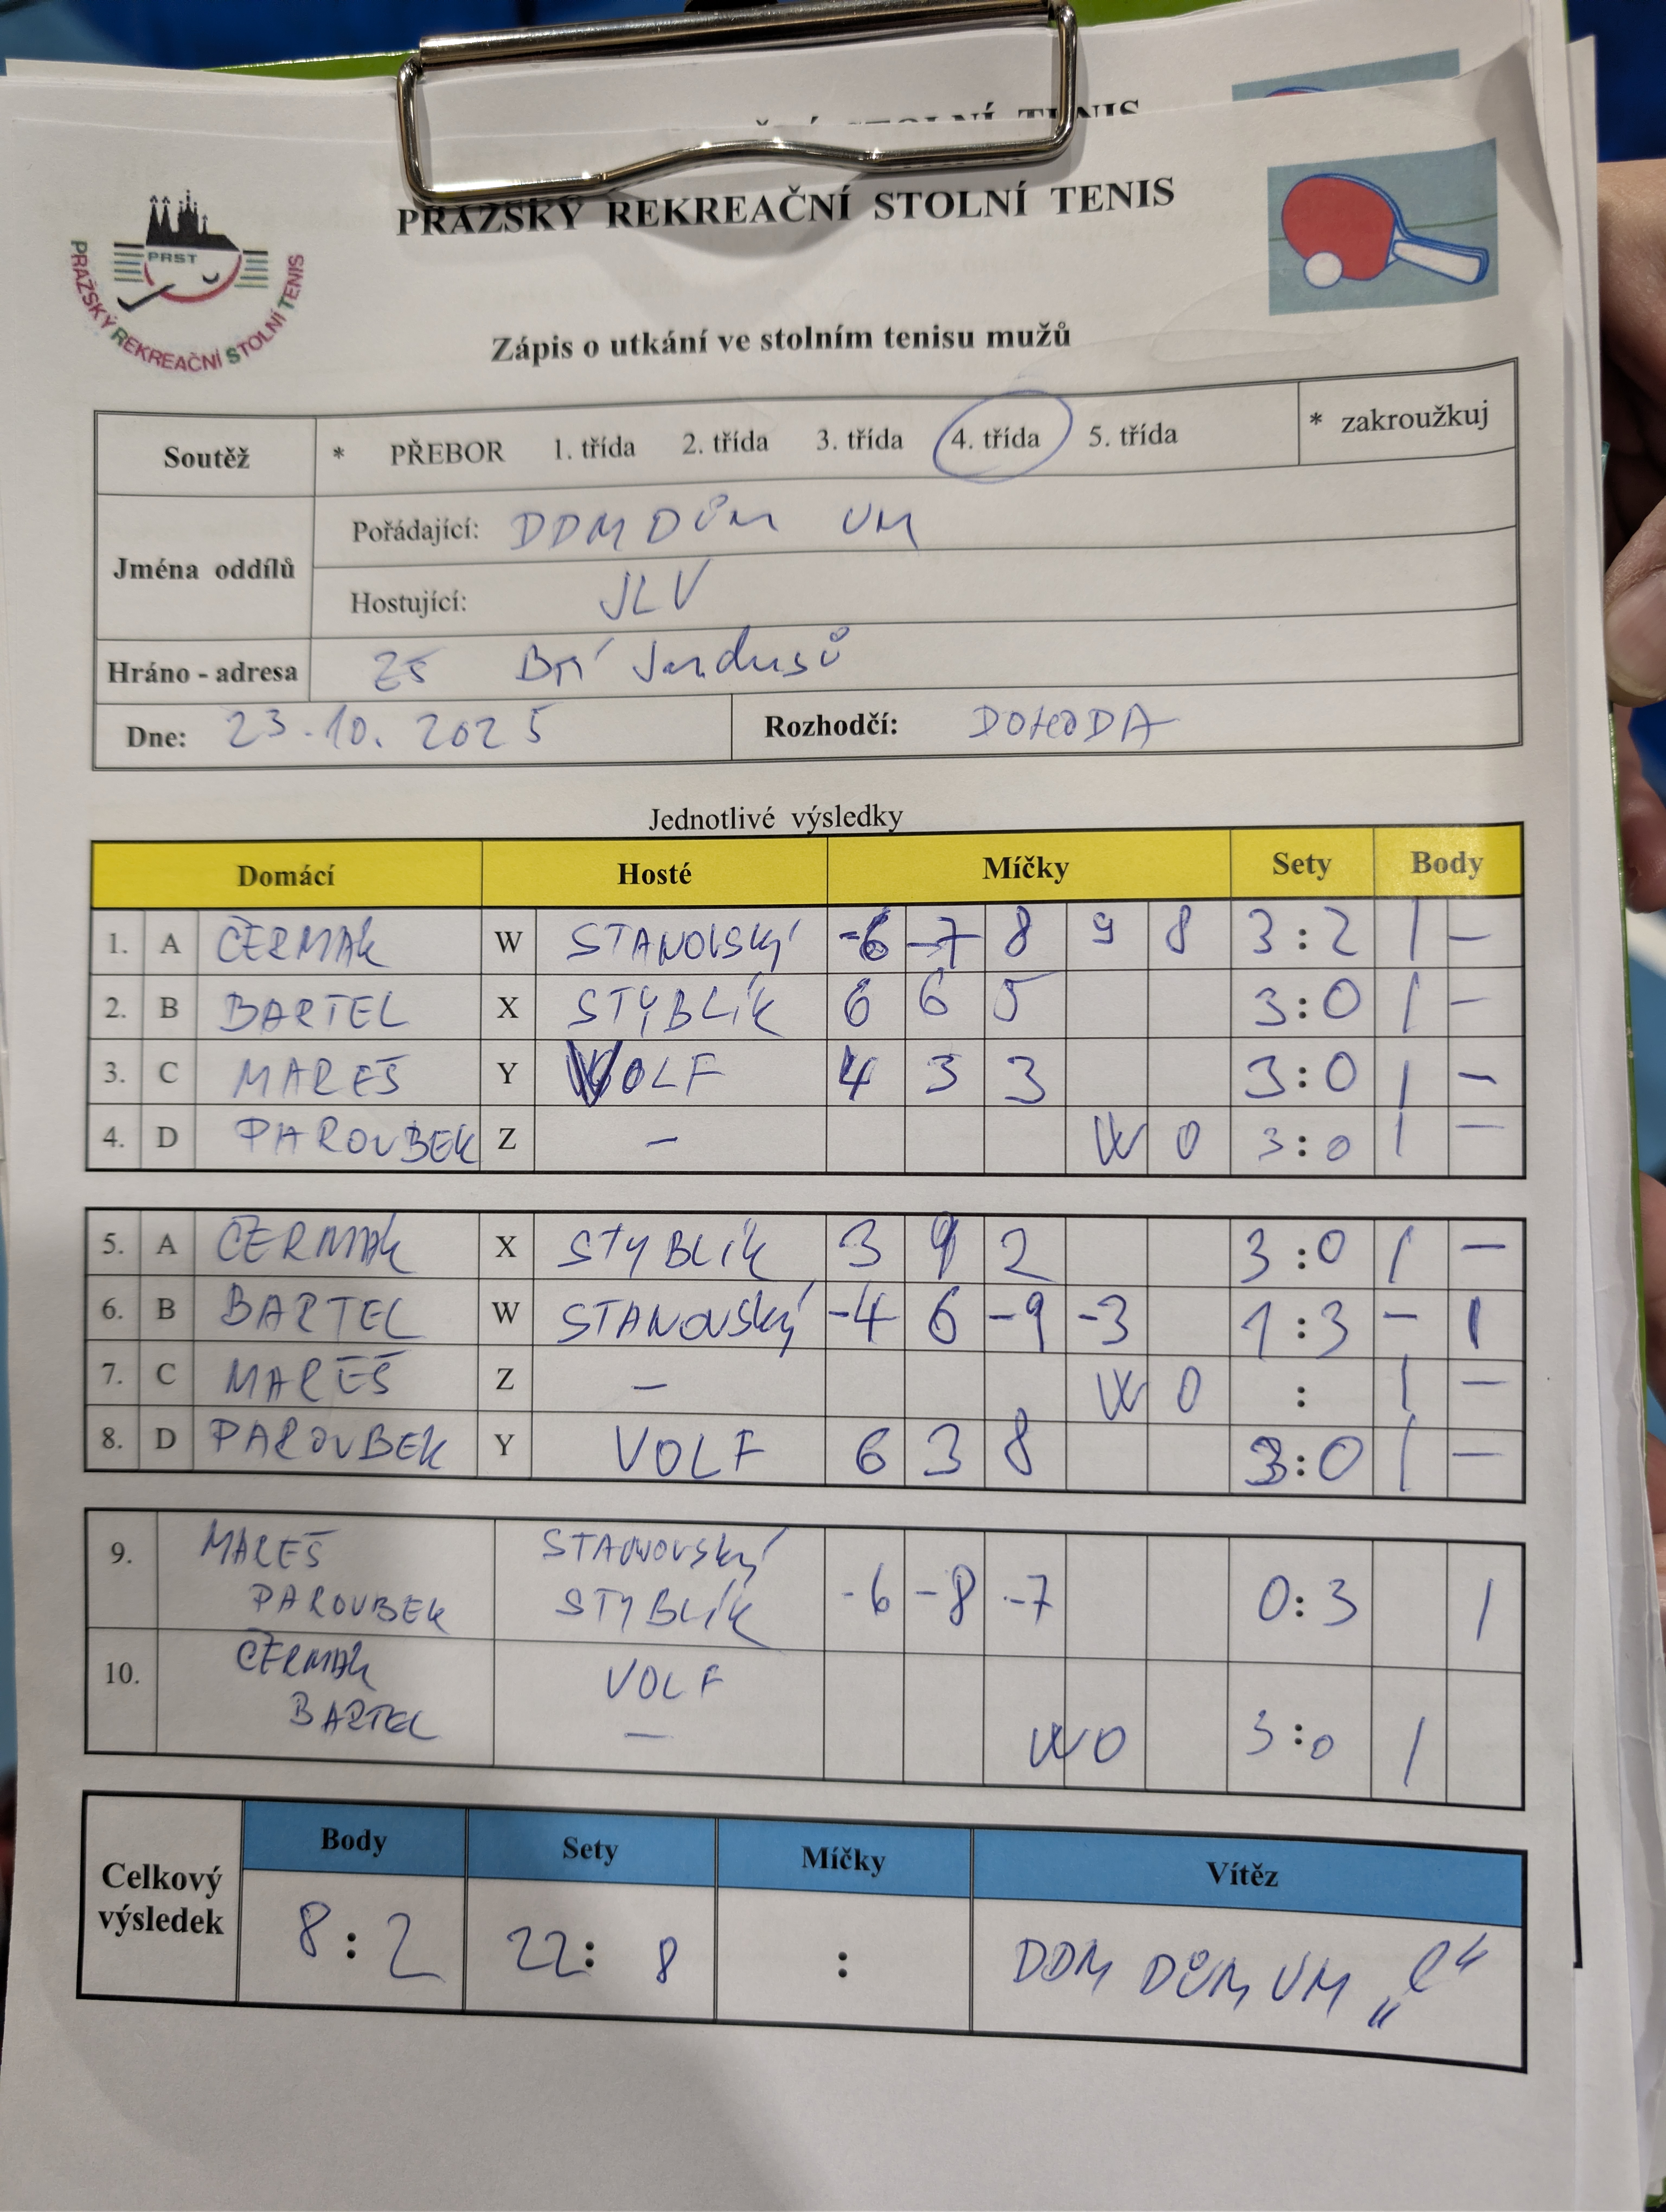 STOLNÍ TENIS
PRAŽSKÝ REKREAČNÍ STOLNÍ TENIS
PRST
PRAŽSKÝ REKREAČNÍ STOLNÍ TENIS
Zápis o utkání ve stolním tenisu mužů
Soutěž * PŘEBOR 1. třída 2. třída 3. třída 4. třída 5. třída * zakroužkuj
Jména oddílů
Pořádající: DDM DŮM UM
Hostující: JLV
Hráno - adresa ZŠ Bří Jandusů
Dne: 23.10.2025 Rozhodčí: DOHODA
Jednotlivé výsledky
Domácí Hosté Míčky Sety Body
1. A ČERMAK W STANOVSKÝ -6 -7 8 9 8 3:2 1 -
2. B BARTEL X STYBLÍK 6 6 5 3:0 1 -
3. C MAREŠ Y VOLF 4 3 3 3:0 1 -
4. D PAROUBEK Z - W 0 3:0 1 -
5. A ČERMAK X STYBLÍK 3 9 2 3:0 1 -
6. B BARTEL W STANOVSKÝ -4 6 -9 -3 1:3 - 1
7. C MAREŠ Z - W 0 : 1 -
8. D PAROUBEK Y VOLF 6 3 8 3:0 1 -
9. MAREŠ STANOVSKÝ
PAROUBEK STYBLÍK -6 -8 -7 0:3 1
10. ČERMAK VOLF
BARTEL - W0 3:0 1
Celkový výsledek
Body Sety Míčky Vítěz
8:2 22:8 : DDM DŮM UM „C“